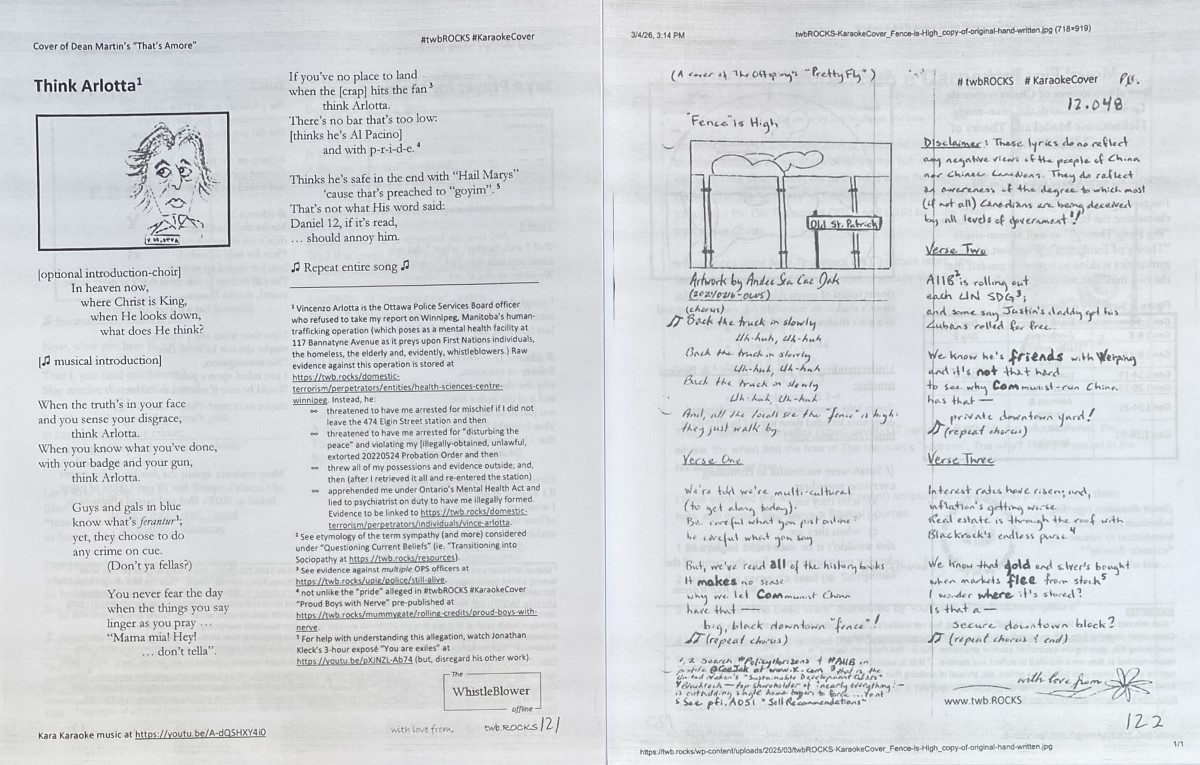 Cover of Dean Martin's "That's Amore"
#twbROCKS #KaraokeCover
Think Arlotta¹
[optional introduction-choir]
In heaven now,
where Christ is King,
when He looks down,
what does He think?
[♫ musical introduction]
When the truth's in your face
and you sense your disgrace,
think Arlotta.
When you know what you've done,
with your badge and your gun,
think Arlotta.
Guys and gals in blue
know what's ferantur¹;
yet, they choose to do
any crime on cue.
(Don't ya fellas?)
You never fear the day
when the things you say
linger as you pray ...
"Mama mia! Hey!
... don't tella".
Kara Karaoke music at https://youtu.be/A-dQSHXY4i0
If you've no place to land
when the [crap] hits the fan³
think Arlotta.
There's no bar that's too low:
[thinks he's Al Pacino]
and with p-r-i-d-e.⁴
Thinks he's safe in the end with "Hail Marys"
'cause that's preached to "goyim".⁵
That's not what His word said:
Daniel 12, if it's read,
... should annoy him.
♫ Repeat entire song ♫
¹ Vincenzo Arlotta is the Ottawa Police Services Board officer
who refused to take my report on Winnipeg, Manitoba's human-
trafficking operation (which poses as a mental health facility at
117 Bannatyne Avenue as it preys upon First Nations individuals,
the homeless, the elderly and, evidently, whistleblowers.) Raw
evidence against this operation is stored at
https://twb.rocks/domestic-
terrorism/perpetrators/entities/health-sciences-centre-
winnipeg. Instead, he:
∞ threatened to have me arrested for mischief if I did not
leave the 474 Elgin Street station and then
∞ threatened to have me arrested for "disturbing the
peace" and violating my [illegally-obtained, unlawful,
extorted 20220524 Probation Order and then
∞ threw all of my possessions and evidence outside; and,
then (after I retrieved it all and re-entered the station)
∞ apprehended me under Ontario's Mental Health Act and
lied to psychiatrist on duty to have me illegally formed.
Evidence to be linked to https://twb.rocks/domestic-
terrorism/perpetrators/individuals/vince-arlotta.
² See etymology of the term sympathy (and more) considered
under "Questioning Current Beliefs" (ie. "Transitioning into
Sociopathy at https://twb.rocks/resources).
³ See evidence against multiple OPS officers at
https://twb.rocks/upig/police/still-alive.
⁴ not unlike the "pride" alleged in #twbROCKS #KaraokeCover
"Proud Boys with Nerve" pre-published at
https://twb.rocks/mummygate/rolling-credits/proud-boys-with-
nerve.
⁵ For help with understanding this allegation, watch Jonathan
Kleck's 3-hour exposé "You are exiles" at
https://youtu.be/pXjNZL-Ab74 (but, disregard his other work).
The
WhistleBlower
offline
with love from,
twb.ROCKS 121
3/4/26, 3:14 PM
twbROCKS-KaraokeCover_Fence-is-High_copy-of-original-hand-written.jpg (718×919)
(A cover of The Offspring's "Pretty Fly")
"Fence" is High
Old St. Patrick
Artwork by Andee Sea Cae Jak
(chorus)
♫ Back the truck in slowly
Uh-huh, Uh-huh
Back the truck in slowly
Uh-huh, Uh-huh
Back the truck in slowly
Uh-huh, Uh-huh
And, all the locals see the "fence" is high:
they just walk by.
Verse One
We're told we're multi-cultural
(to get along today).
Be careful what you put online:
be careful what you say
But, we've read all of the history books
It makes no sense
why we let Communist China
have that —
big, black downtown "fence"!
♫ (repeat chorus)
1, 2 Search #PolicyHorizons + #AIIB in
at www.X.com ³ that is, the
United Nation's "Sustainable Development Goals"
⁴ Blackrock — top shareholder of "nearly everything":
⁵ See pfi. AOSI "Sell Recommendations"
# twbROCKS # KaraokeCover
12.048
Disclaimer: These lyrics do no reflect
any negative views of the people of China
nor Chinese Canadians. They do reflect
an awareness of the degree to which most
(if not all) Canadians are being deceived
by all levels of government!¹
Verse Two
AIIB² is rolling out
each UN SDG³;
and some say Justin's daddy got his
Cubans rolled for free.
We know he's friends with Weiping
and it's not that hard
to see why Communist-run China
has that —
private downtown yard!
♫ (repeat chorus)
Verse Three
Interest rates have risen; and,
inflation's getting worse.
Real estate is through the roof with
Blackrock's endless purse⁴
We know that gold and silver's bought
when markets flee from stock⁵
I wonder where it's stored?
Is that a —
secure downtown block?
♫ (repeat chorus & end)
with love from
www.twb.ROCKS
122
https://twb.rocks/wp-content/uploads/2025/03/twbROCKS-KaraokeCover_Fence-is-High_copy-of-original-hand-written.jpg
1/1